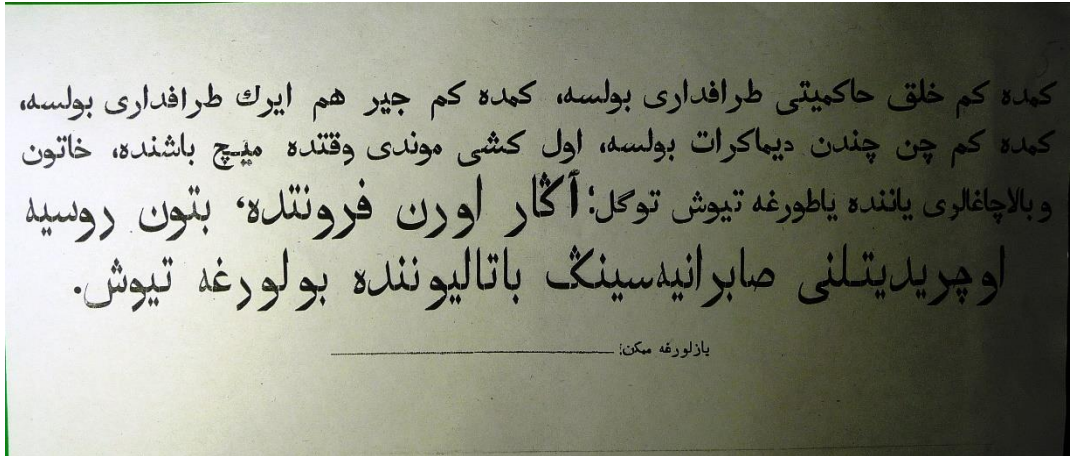 كمده كم خلق حاكميتى طرافدارى بولسه، كمده كم جير هم ايرك طرافدارى بولسه،
كمده كم چن چندن ديماكرات بولسه، اول كشى موندى وقتده ميچ باشنده، خاتون
وبالاچاغالرى ياننده ياطورغه تيوش توگل: آڭار اورن فرونتده، بتون روسيه
اوچريديتلنى صابرانيه‌سينڭ باتاليوننده بولورغه تيوش.
يازلورغه ممكن: